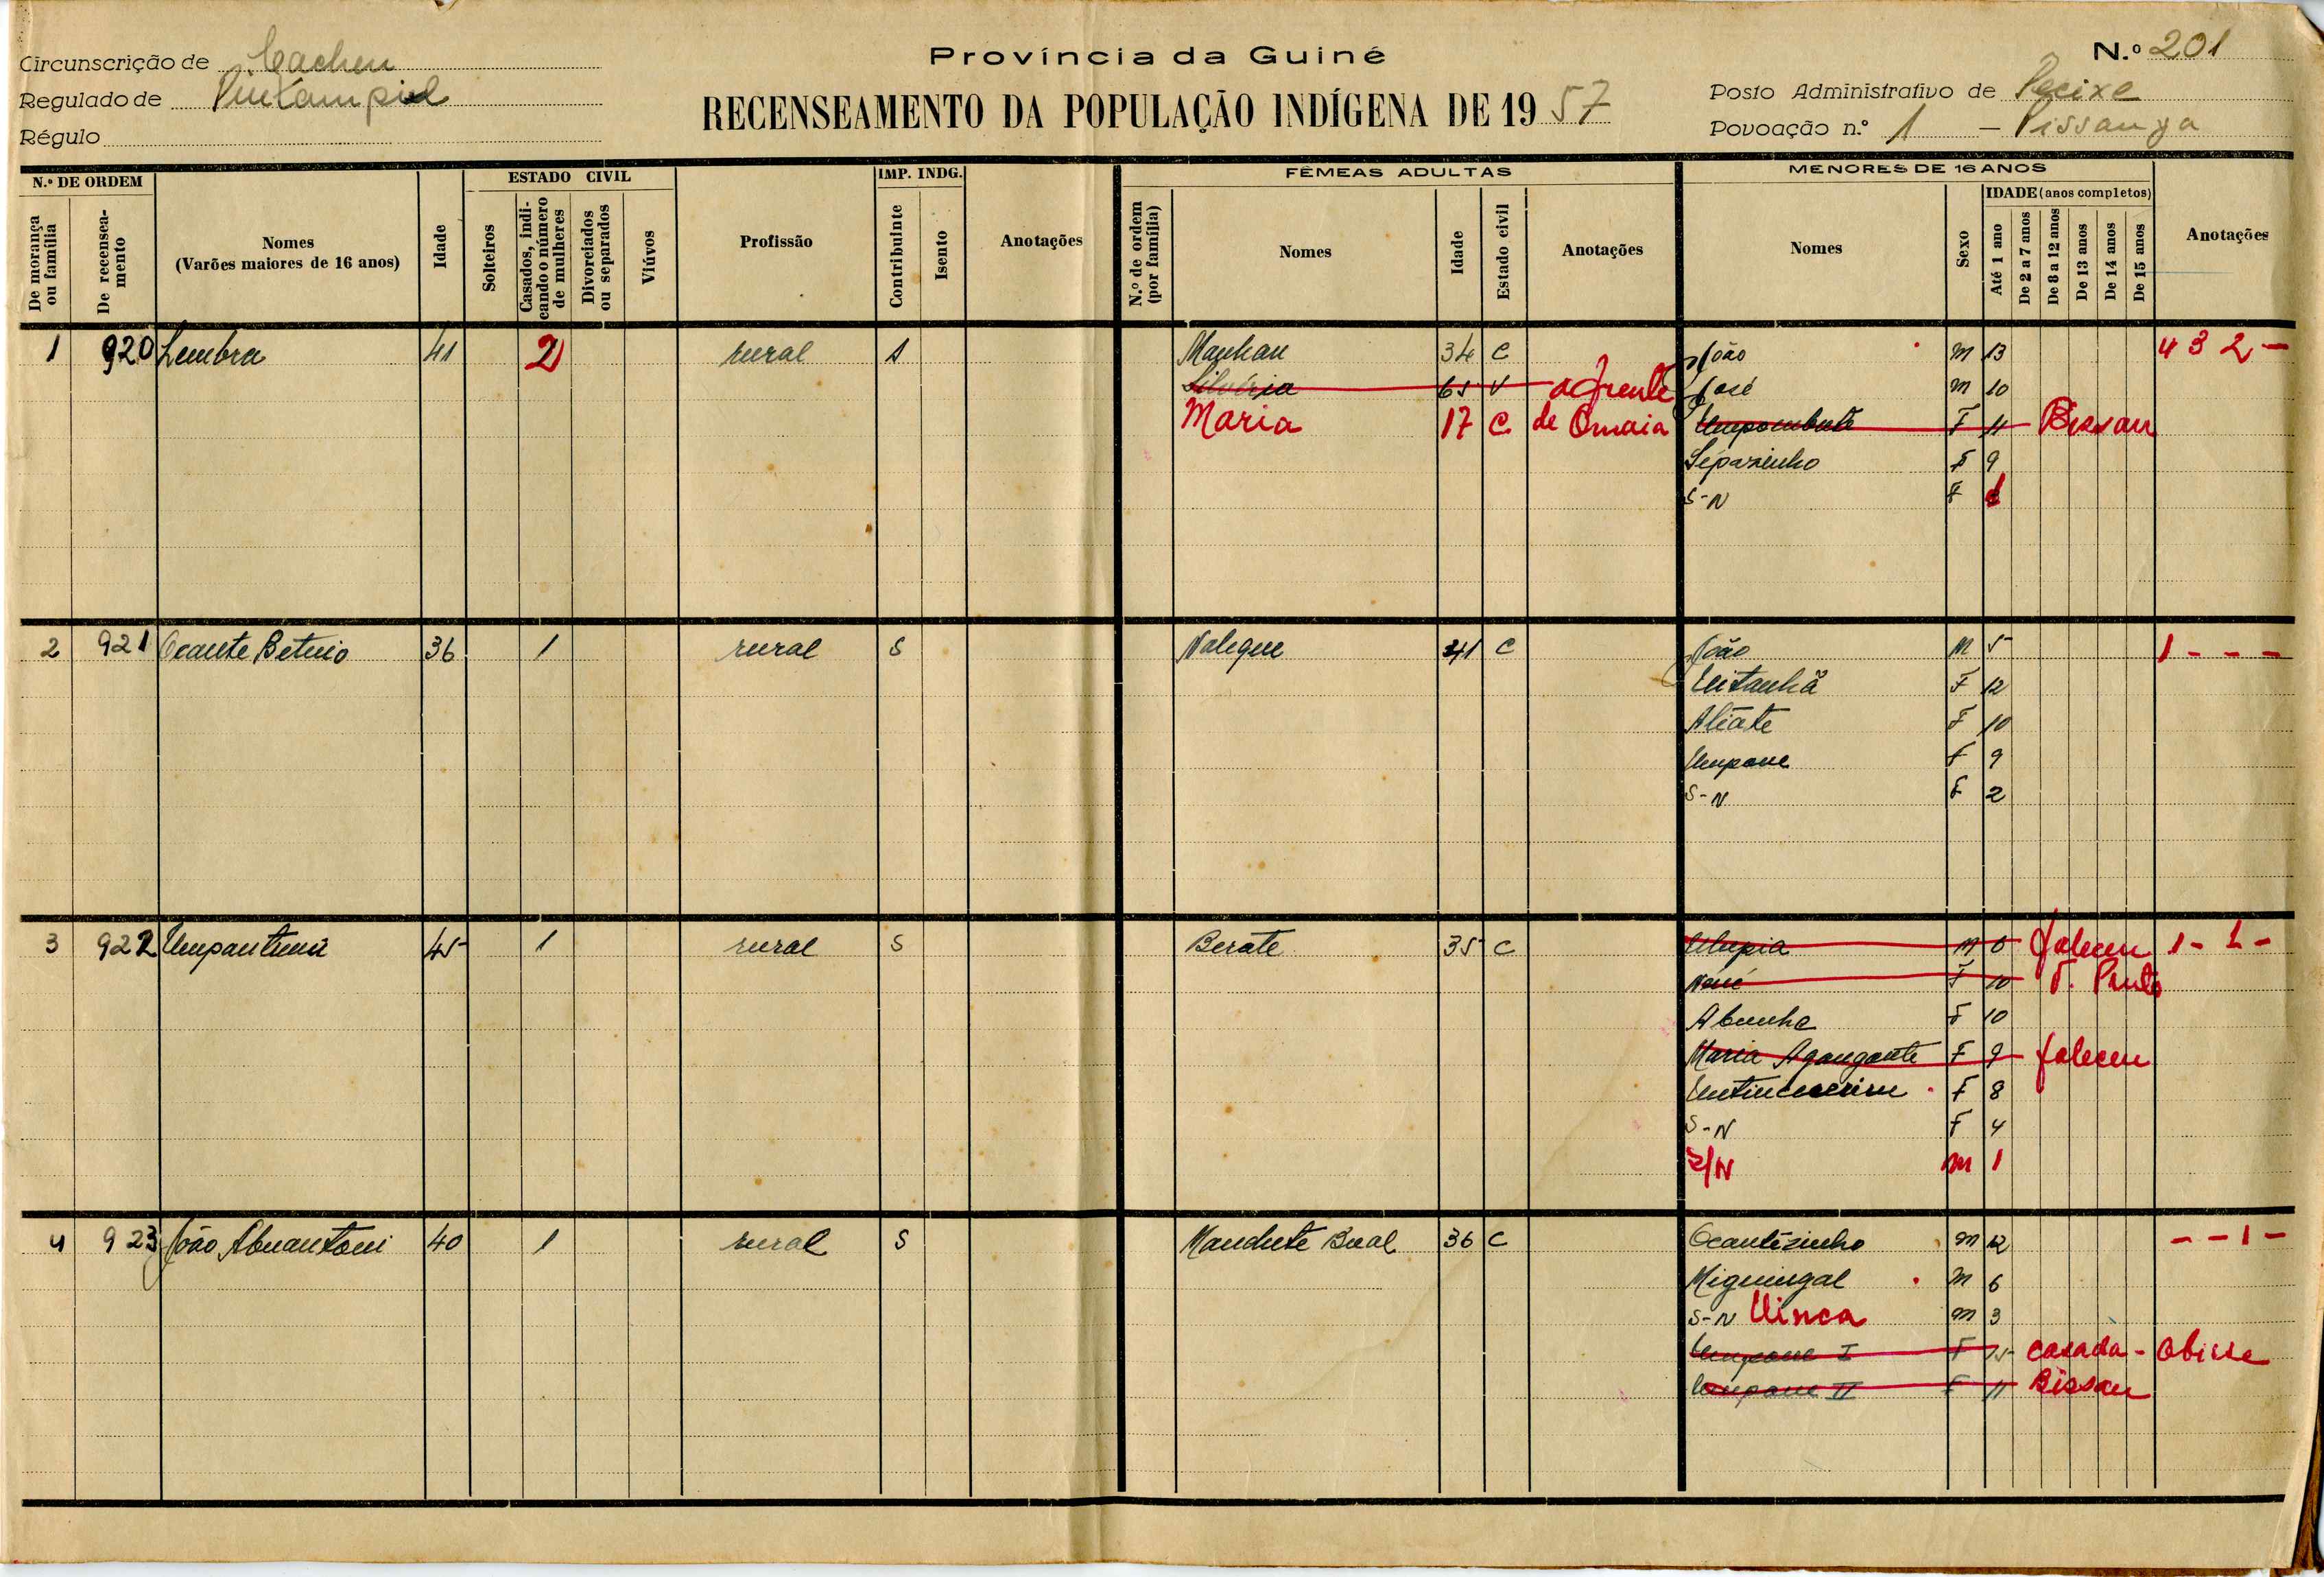 Circunscrição de Cacheu
Província da Guiné
N.º 201
Regulado de
RECENSEAMENTO DA POPULAÇÃO INDÍGENA DE 1957
Posto Administrativo de Pecixe
Régulo
Povoação n.º 1 - Pissanga
N.º DE ORDEM
De morança ou família
De recenseamento
Nomes
(Varões maiores de 16 anos)
Idade
ESTADO CIVIL
Solteiros
Casados, indicando o número de mulheres
Divorciados ou separados
Viúvos
Profissão
IMP. INDG.
Contribuinte
Isento
Anotações
FÊMEAS ADULTAS
N.º de ordem (por família)
Nomes
Idade
Estado civil
Anotações
MENORES DE 16 ANOS
Nomes
Sexo
IDADE (anos completos)
Até 1 ano
De 2 a 7 anos
De 8 a 12 anos
De 13 anos
De 14 anos
De 15 anos
Anotações
1 920 Lembra 41 2 rural S Manhan 34 C João M 13 4 3 2 -
Silvéria 65 V a frente José M 10
Maria 17 C de Omaia F 11 Bissau
Separinho F 9
S-N F
2 921 Ocante Betuio 36 1 rural S Naleque 41 C João M 5 1 - - -
Untanhã F 12
Aliate F 10
Umpane F 9
S-N F 2
3 922 45 1 rural S Berate 35 C M 6 faleceu 1 - 1 -
Nené F 10 T. Pinto
Abunha F 10
Maria Agangante F 9 faleceu
F 8
S-N F 4
S/N M 1
4 923 João Abuantoni 40 1 rural S Mandute Bual 36 C Ocantêzinho M 12 - - 1 -
Miguingal M 6
S-N Uinca M 3
Umpane I F 15 casada - Obisse
Umpane II F 11 Bissau